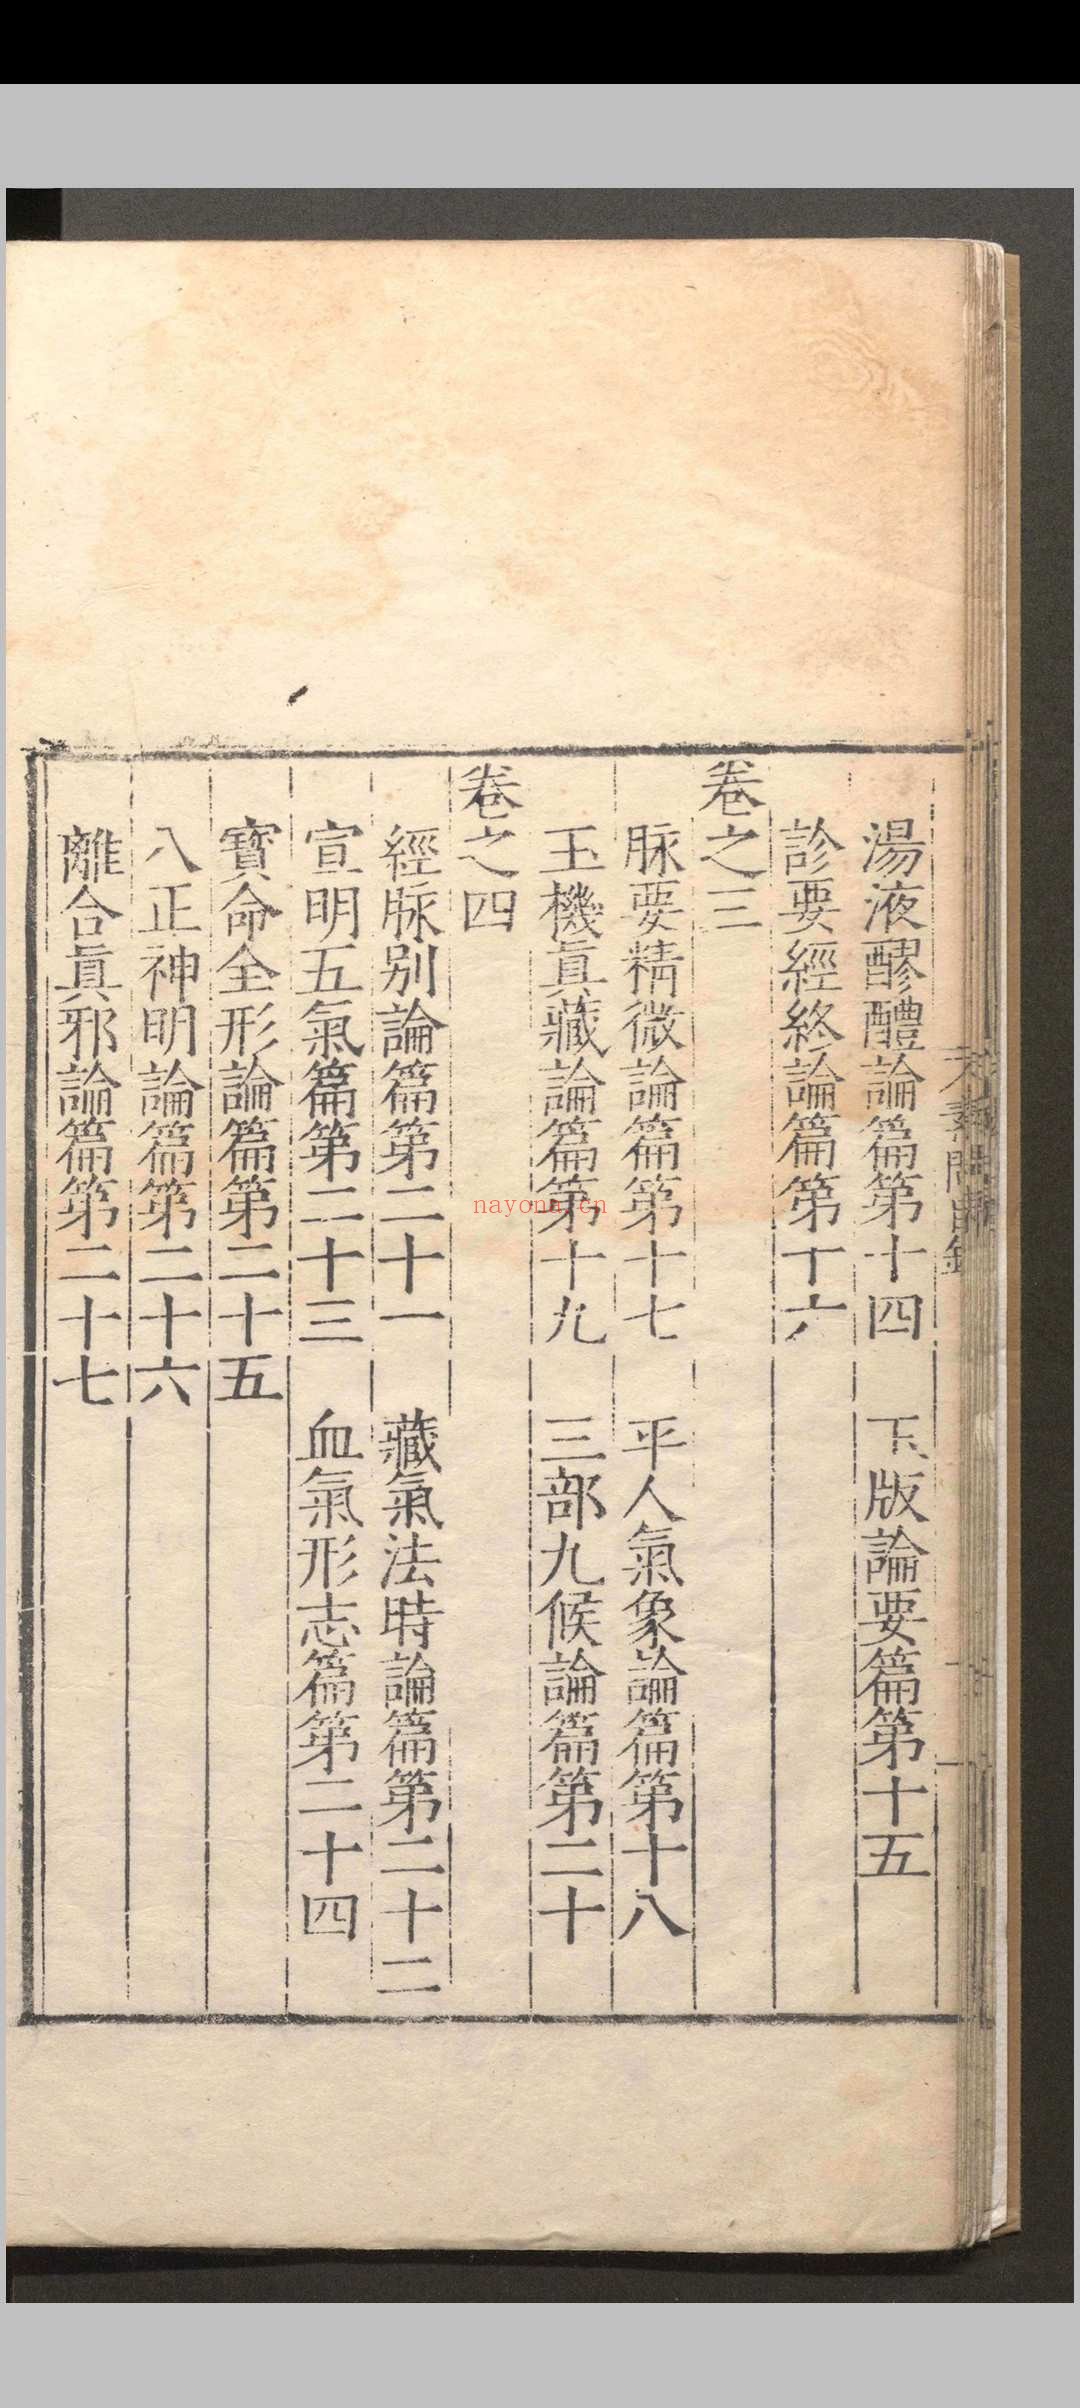 湯液醪醴論篇第十四　玉版論要篇第十五
診要經終論篇第十六
卷之三
脉要精微論篇第十七　平人氣象論篇第十八
玉機眞藏論篇第十九　三部九候論篇第二十
卷之四
經脉别論篇第二十一　藏氣法時論篇第二十二
宣明五氣篇第二十三　血氣形志篇第二十四
寳命全形論篇第二十五
八正神明論篇第二十六
離合眞邪論篇第二十七
nayona.cn